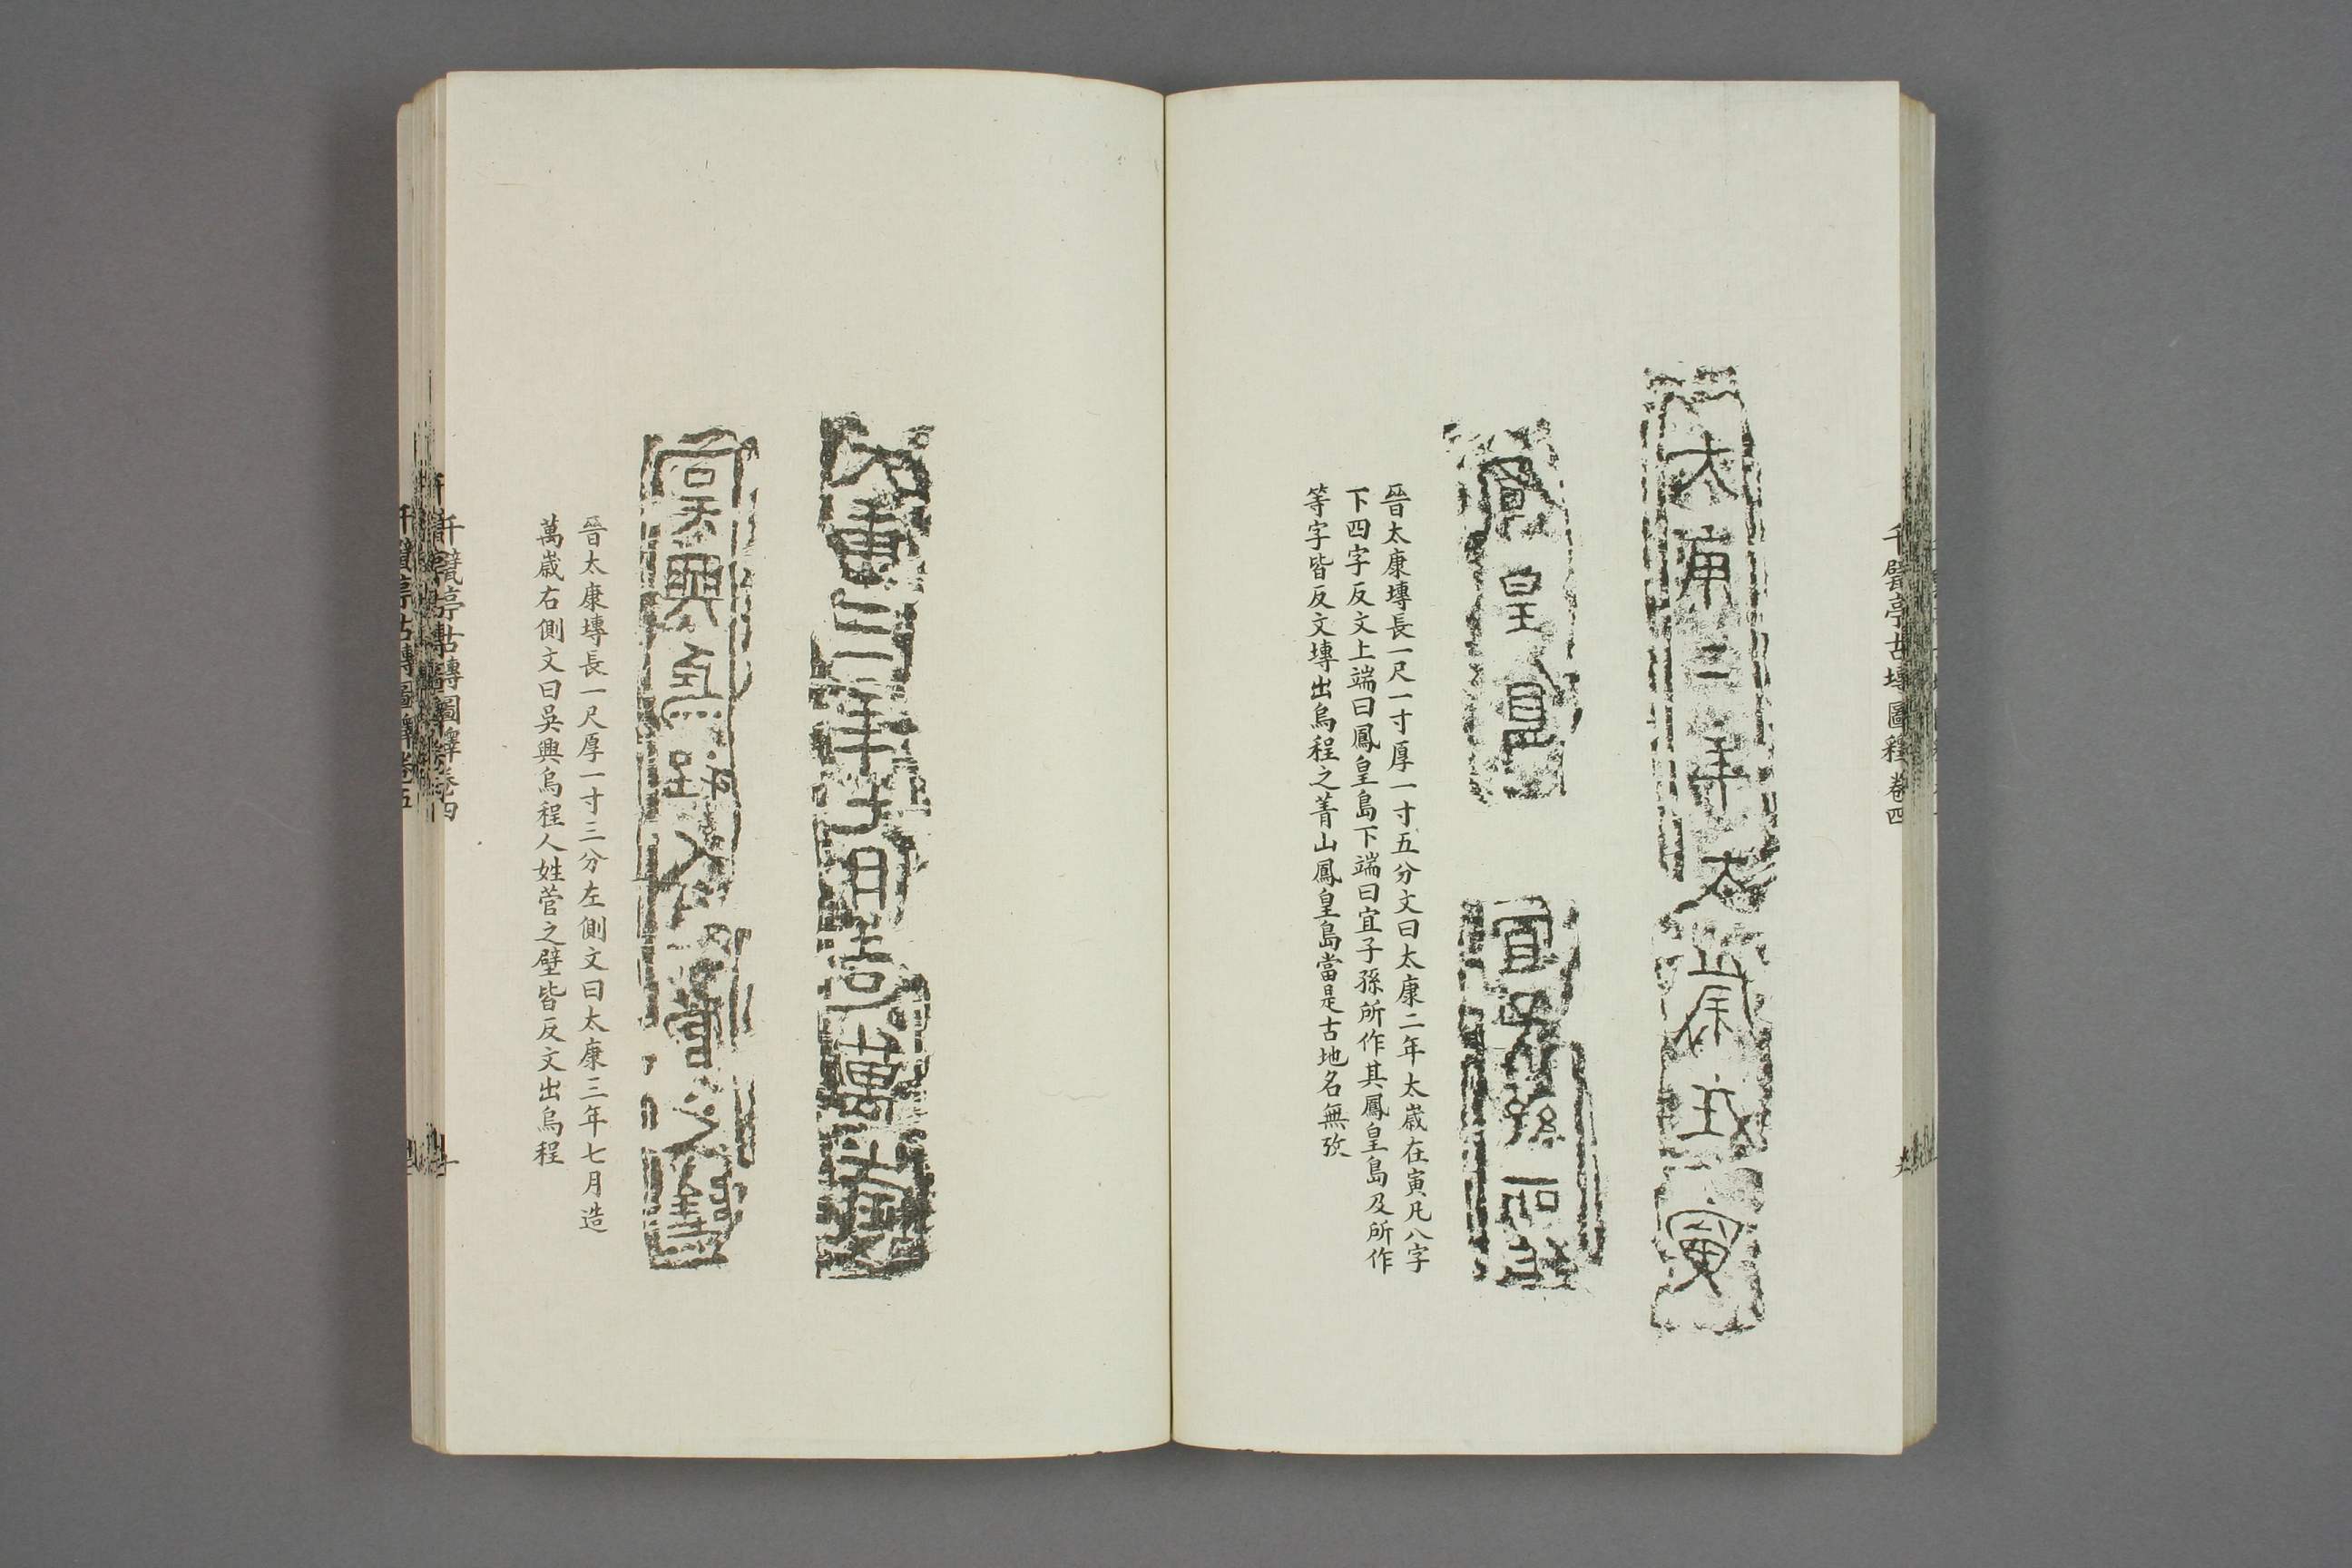 千甓亭古塼圖釋卷四
太康二年太歲在寅
鳳皇㠀
宜子孫所作
晉太康塼長一尺一寸厚一寸五分文曰太康二年太歲在寅凡八字
下四字反文上端曰鳳皇㠀下端曰宜子孫所作其鳳皇㠀及所作
等字皆反文塼出烏程之菁山鳳皇㠀當是古地名無攷
太康三年七月造萬歲
吳興烏程人姓菅之壁
晉太康塼長一尺厚一寸三分左側文曰太康三年七月造
萬歲右側文曰吳興烏程人姓菅之壁皆反文出烏程
千甓亭古塼圖釋卷四